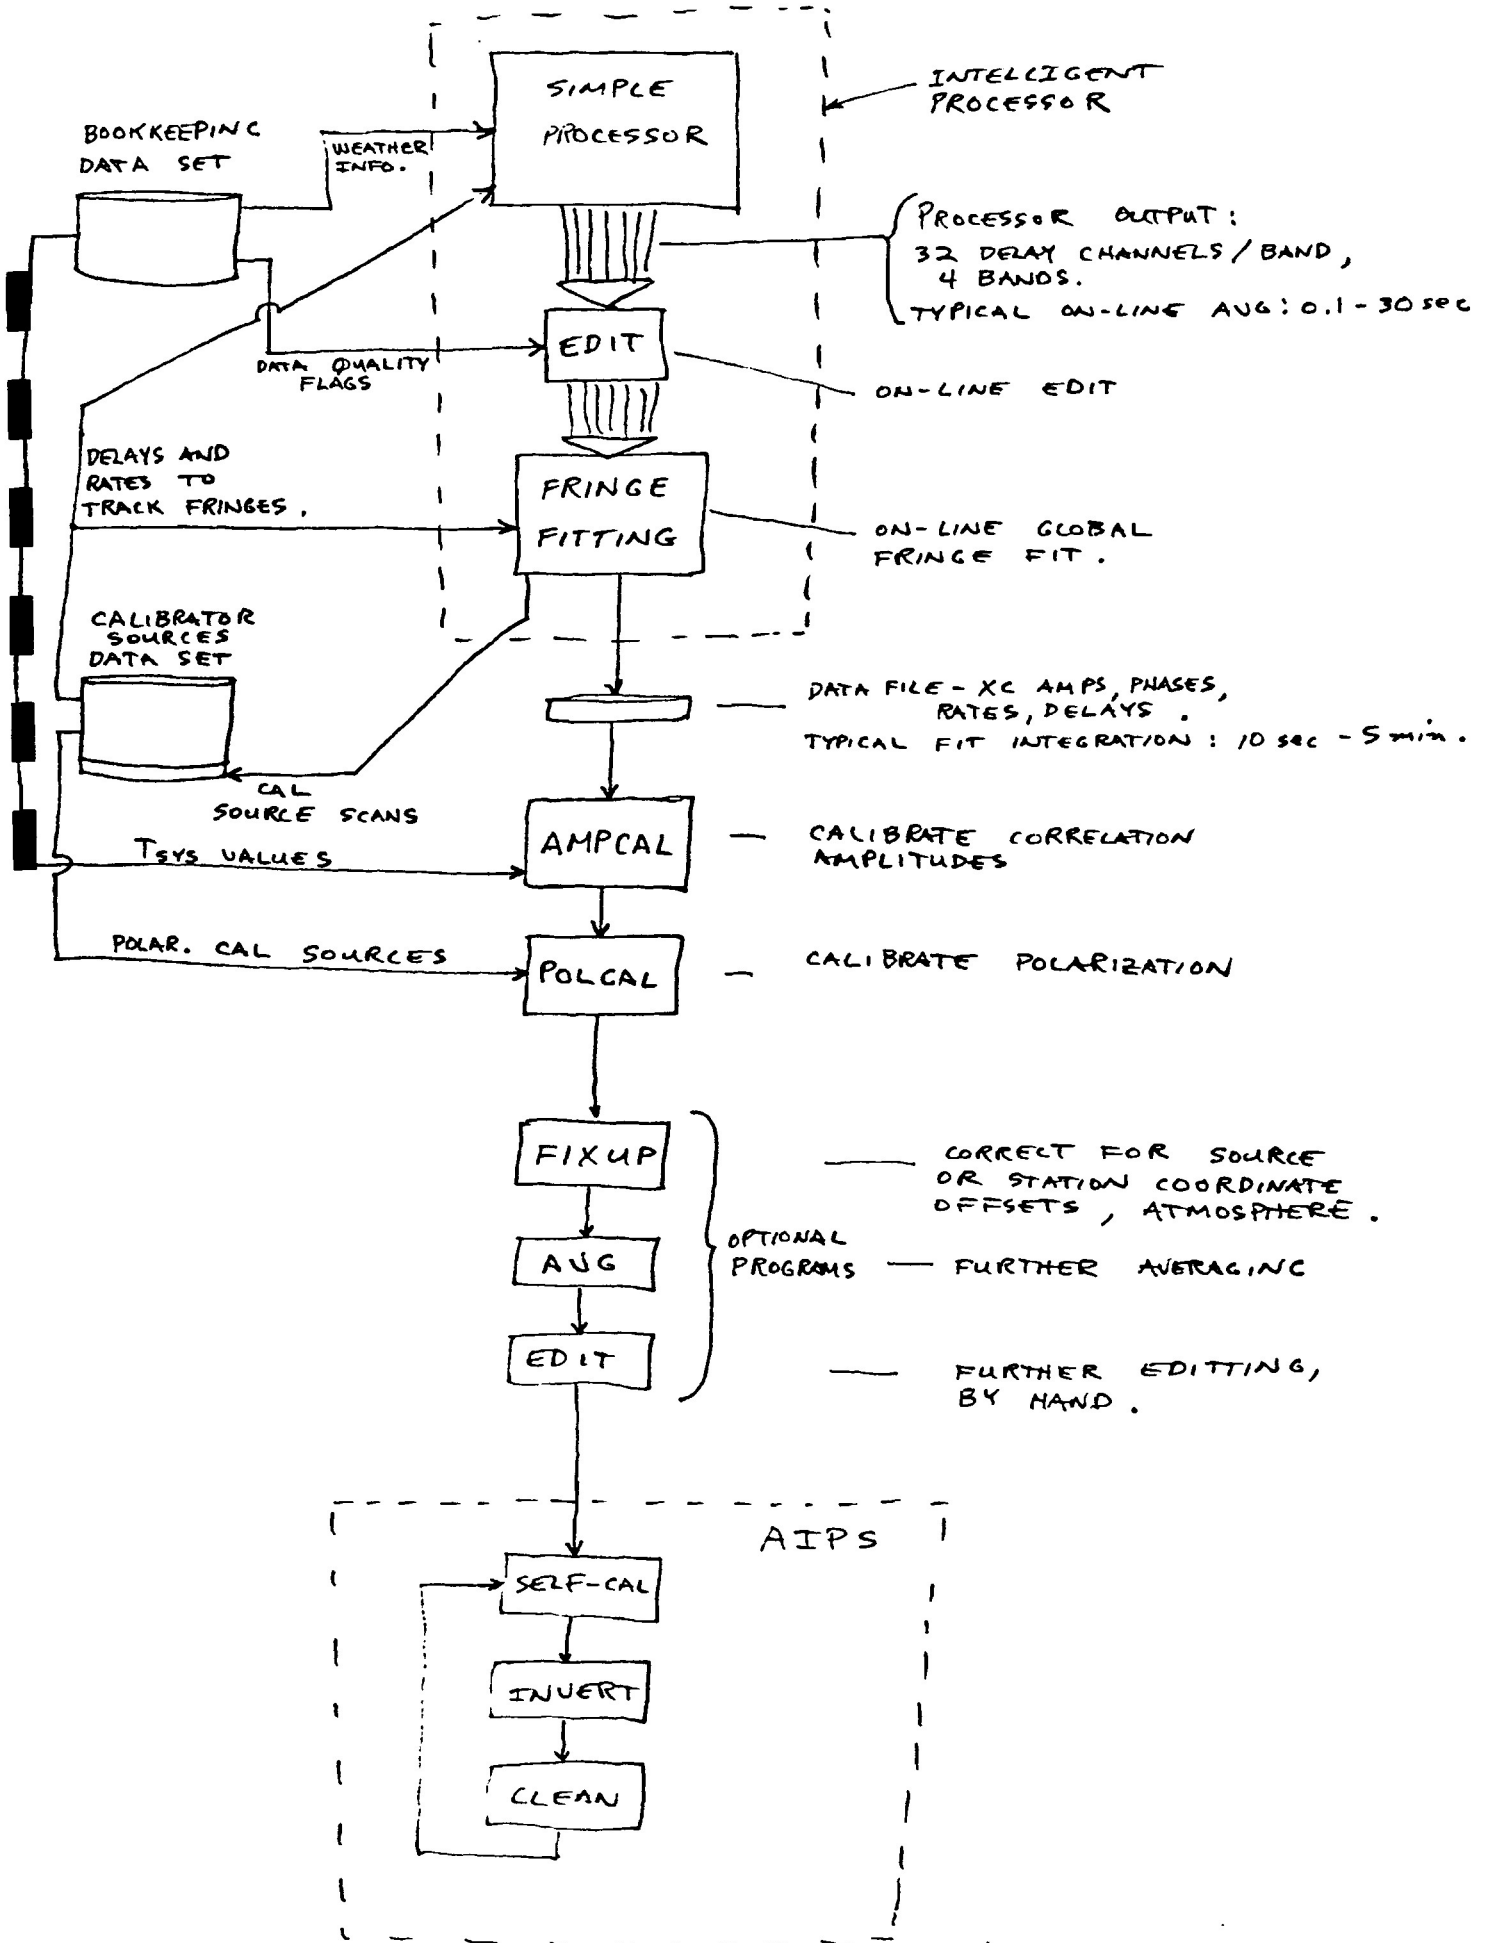 SIMPLE
PROCESSOR
INTELLIGENT
PROCESSOR
BOOKKEEPING
DATA SET
WEATHER
INFO.
PROCESSOR OUTPUT:
32 DELAY CHANNELS/BAND,
4 BANDS.
TYPICAL ON-LINE AVG: 0.1-30 sec
EDIT
DATA QUALITY
FLAGS
ON-LINE EDIT
DELAYS AND
RATES TO
TRACK FRINGES.
FRINGE
FITTING
ON-LINE GLOBAL
FRINGE FIT.
CALIBRATOR
SOURCES
DATA SET
DATA FILE - XC AMPS, PHASES,
RATES, DELAYS.
TYPICAL FIT INTEGRATION: 10 sec - 5 min.
CAL
SOURCE SCANS
AMPCAL
CALIBRATE CORRELATION
AMPLITUDES
TSYS VALUES
POLAR. CAL SOURCES
POLCAL
CALIBRATE POLARIZATION
FIXUP
CORRECT FOR SOURCE
OR STATION COORDINATE
OFFSETS, ATMOSPHERE.
AVG
OPTIONAL
PROGRAMS
FURTHER AVERAGING
EDIT
FURTHER EDITTING,
BY HAND.
AIPS
SELF-CAL
INVERT
CLEAN